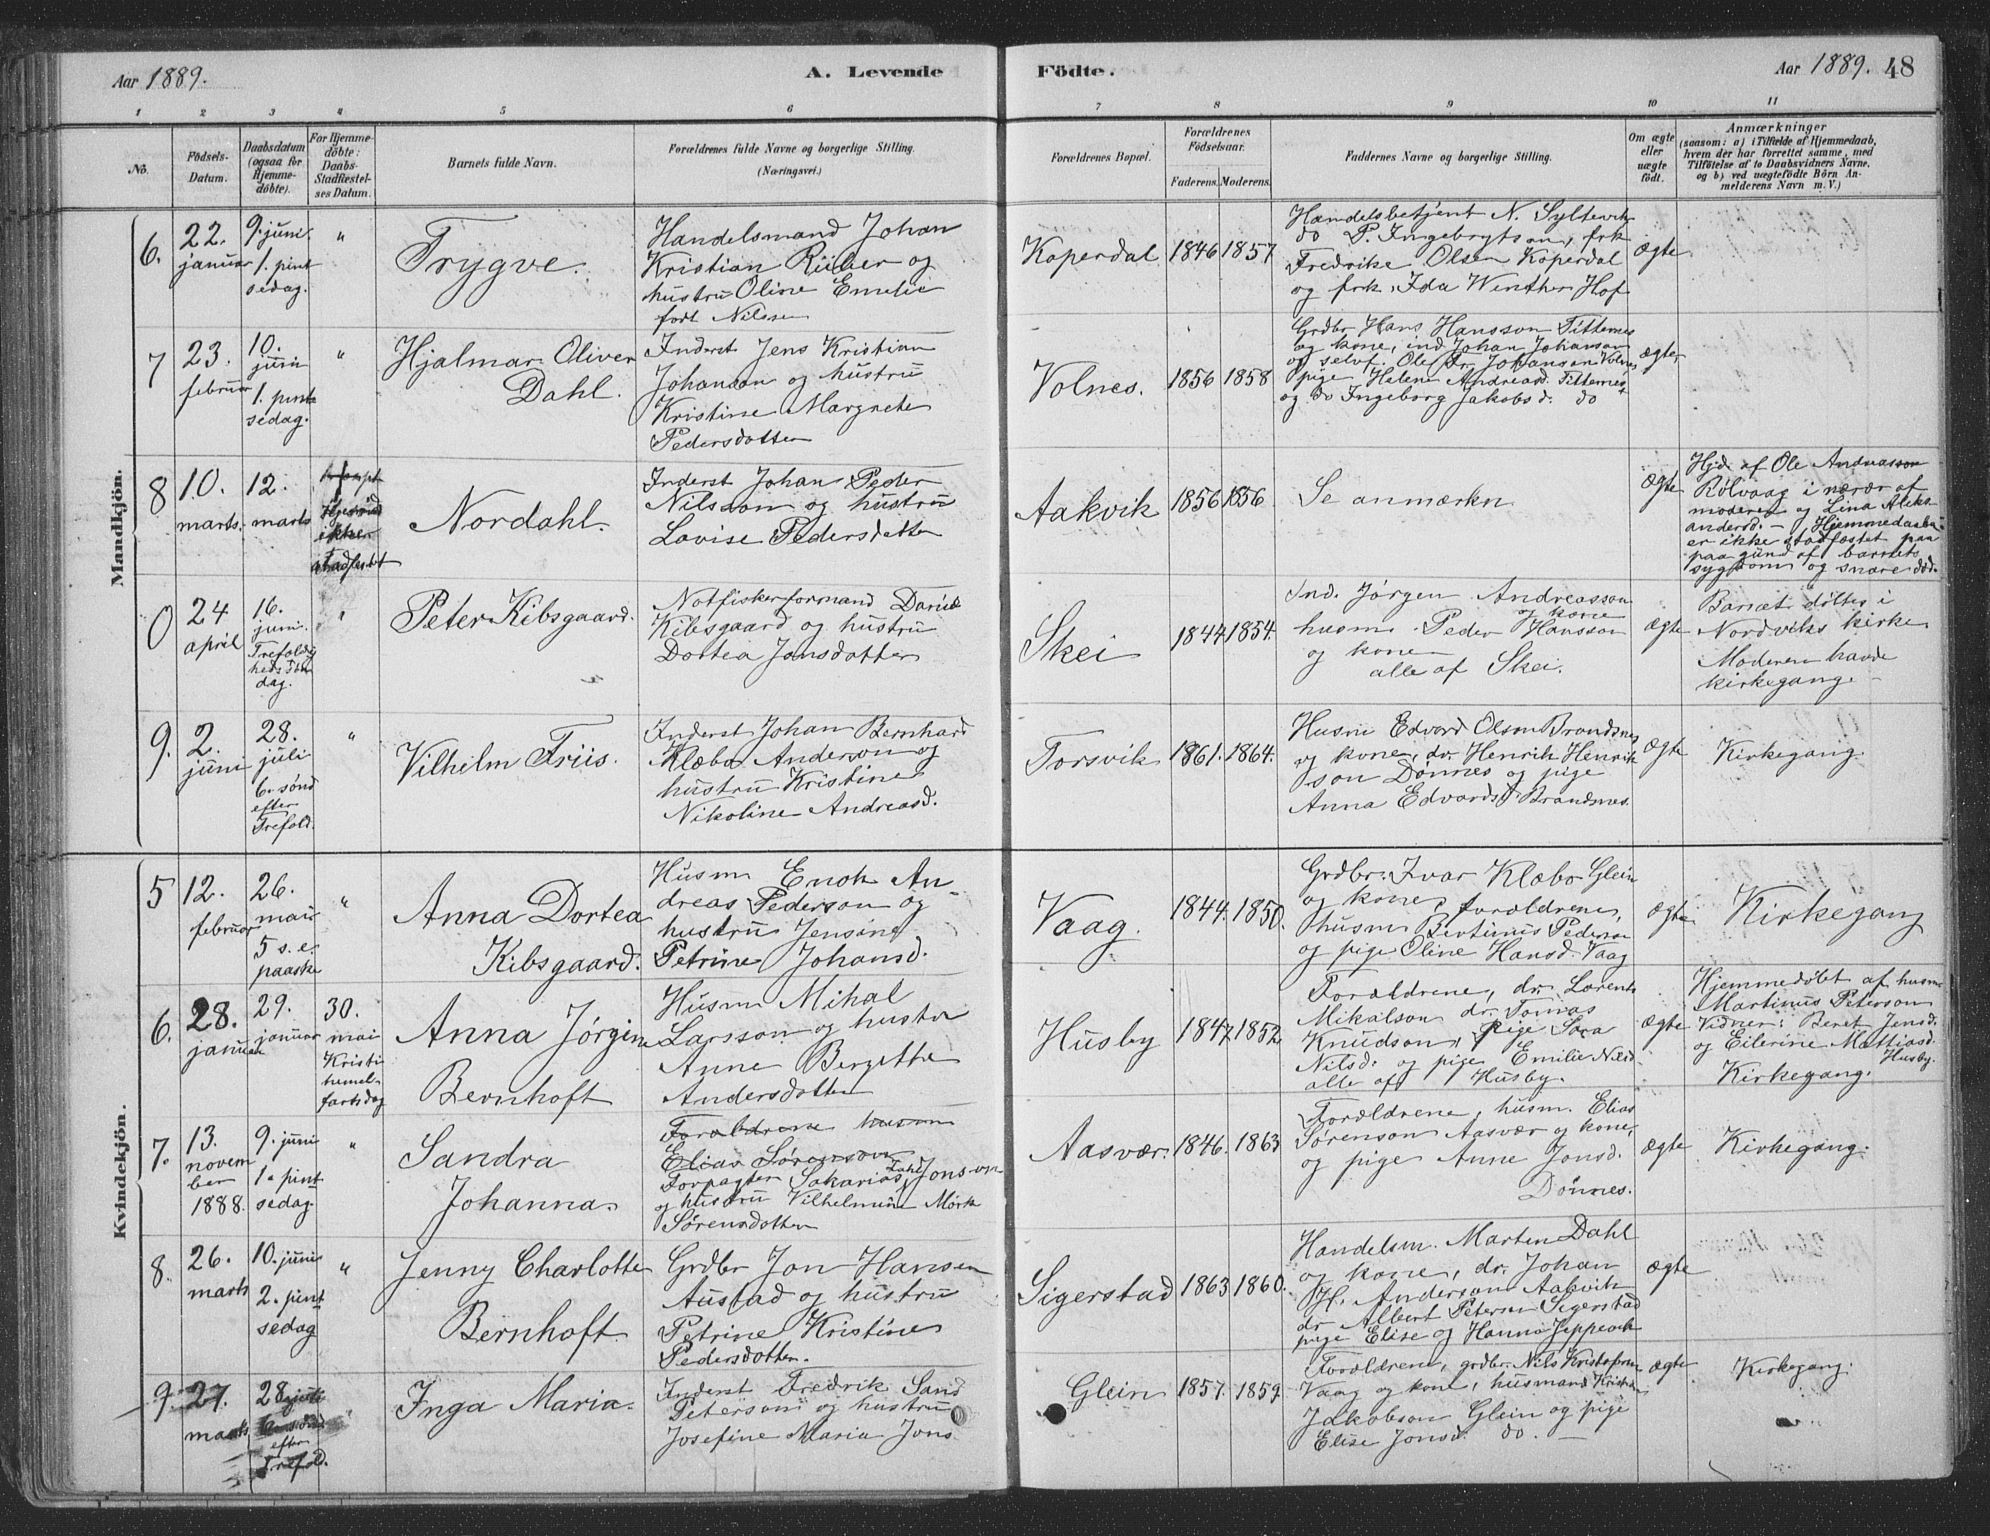 Aar 1889. A. Levende Födte. Aar 1889. 48
1 2 3 4 5 6 7 8 9 10 11
No.
Födsels-
Datum.
Daabsdatum
(ogsaa for
Hjemme-
döbte).
For Hjemme-
döbte:
Daabs-
Stadfæstel-
ses Datum.
Barnets fulde Navn.
Forældrenes fulde Navne og borgerlige Stilling.
(Næringsvei.)
Forældrenes Bopæl.
Forældrenes
Födselsaar.
Faderens. Moderens.
Faddernes Navne og borgerlige Stilling.
Om ægte
eller
uægte
födt.
Anmærkninger
(saasom: a) i Tilfælde af Hjemmedaab,
hvem der har forrettet samme, med
Tilföielse af to Daabsvidners Navne,
og b) ved uægtefödte Börn An-
melderens Navn m. V.)
Mandkjön.
6.
22.
januar
9. juni.
1. pint
sedag.
"
Trygve.
Handelsmand Johan
Kristian Rüber og
hustru Oline Emelie
født Nilssen
Koperdal
1846 1857
Handelsbetjent N. Syltevik
do P. Ingebrytson, frk
Fredrike Olsen Koperdal
og frk. Ida Winther Hof
ægte
7
23.
februar
10.
juni
1. pint
sedag.
"
Hjalmar Oliver
Dahl.
Inderst Jens Kristian
Johanson og hustru
Kristine Margrete
Pedersdatter
Volnes.
1856 1858
Grdbr Hans Hansson Titternes
og kone, ind Johan Johanson
og selvf. Ole Fr. Johanson Volnes
pige Helene Andreasd. Titternes
og do Ingeborg Jakobsd. do
ægte
8
10.
marts.
12.
marts
ikke
stadfestet
Nordahl.
Inderst Johan Peder
Nilsson og hustru
Lovise Pedersdatter
Aakvik
1856 1856
Se anmærkn
ægte
Hjd. af Ole Andreasson
Rölvaag i nærvær af
moderen og Lina Aleks-
andersd. - Hjemmedaaben
er ikke stadfæstet paa
paa grund af barnets
sygdom og snare død.
0
24
april
16.
juni.
Trefoldig
heds Søn
dag.
"
Peter Kibsgaard.
Notfiskerformand Daniel
Kibsgaard og hustru
Dortea Jonsdatter
Skei
1844 1854.
Ind. Jörgen Andreasson
og kone
husm. Peder Hansson
og kone
alle af Skei.
ægte
Barnet døbtes i
Nordviks kirke
Moderen havde
kirkegang. -
9.
2.
juni
28.
juli
6. sønd
efter
Trefold.
"
Vilhelm Friis.
Inderst Johan Bernhard
Klæbo Anderson og
hustru Kristine
Nikoline Andreasd.
Forsvik
1861. 1864.
Husm Edvard Olsen Brandsnes
og kone, dr. Henrik Henrik
son Dönnes og pige
Anna Edvardsd Brandsnes.
ægte
Kirkegang.
Kvindekjön.
5
12.
februar
26.
mai
5 s. e.
paaske
"
Anna Dortea
Kibsgaard.
Husm Enok An-
dreas Pederson og
hustru Jensine
Petrine Johansd.
Vaag.
1844. 1850.
Grdbr. Ivar Klæbo Glein
og kone, forældrene,
husm Bertinus Pederson
og pige Oline Hansd. Vaag
ægte
Kirkegang
6.
28.
januar
29.
januar
30.
mai
Kristi
himmel-
fartsdag
Anna Jörgine
Bernhoft
Husm Mikal
Larsson og hustru
Anne Bergitte
Andersdatter
Husby
1847 1852
Forældrene, dr. Lorents
Mikalson dr. Tomas
Knudson, pige Sara
Nilsd. og pige Emilie Nilsd
alle af Husby.
ægte
Hjemmedøbt af husm
Martinus Peterson
Vidner: Beret Jensd.
og Eilerine Mattiasd.
Husby.
Kirkegang.
7.
13.
novem
ber
1888.
9. juni
1. pint
sedag.
"
Sandra
Johanna.
Forældrene husm
Elias Sörenson
Forpagter Sakarias Dahl Jonson
og hustru Vilhelmine Mörk
Sörensdatter
Aasvær.
1846. 1863
Forældrene, husm. Elias
Sörenson Aasvær og kone,
og pige Anne Jonsd.
Dönnes.
ægte
Kirkegang.
8.
26.
marts
10. juni
2. pint
sedag
"
Jenny Charlotte
Bernhoft.
Grdbr Jon Hansen
Austad og hustru
Petrine Kristine
Pedersdatter.
Sigerstad
1863 1860.
Handelsm. Marten Dahl
og kone, dr. Johan
H. Anderson Aakvik
dr Albert Peterson Sigerstad
pige Elise og Hanna Jeppesdr
ægte
9.
27.
marts
28 juli
efter
Trefold.
Inga Maria.
Inderst Fredrik Sand
Peterson og hustru
Josefine Maria Jons
Glein
1857. 1859
Forældrene, grdbr. Nils Kristoferson
Vaag og kone, husmand Kristian
Jakobson Glein og pige
Elise Jonsd. do. -
ægte
Kirkegang.